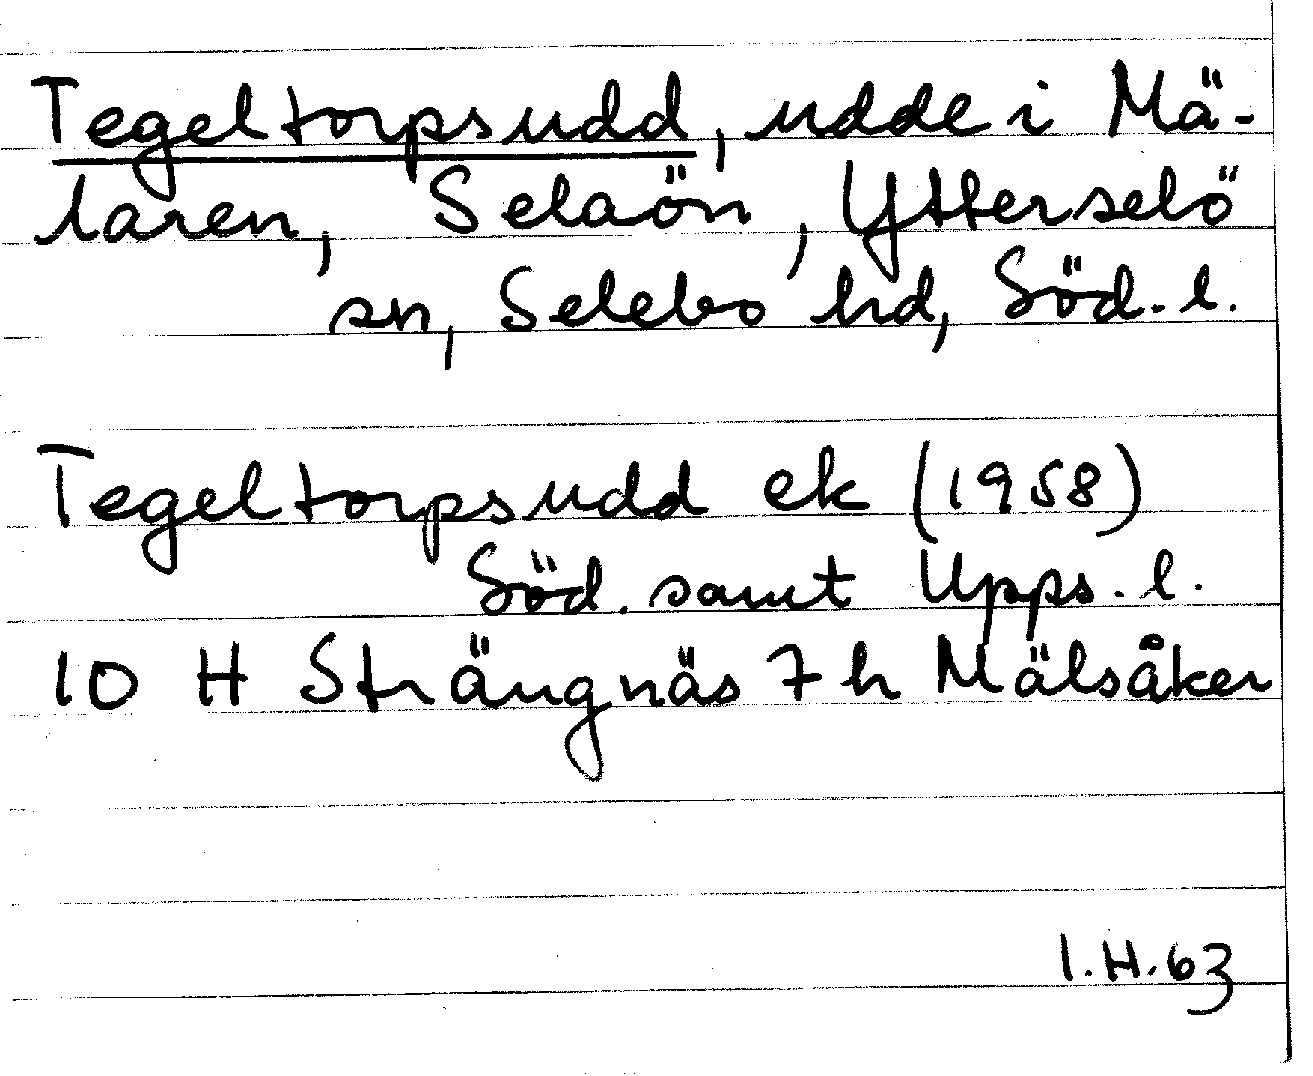 Tegeltorpsudd, udde i Mä-
laren, Selaön, Ytterselö
sn, Selebo hd, Söd. l.
Tegeltorpsudd ek (1958)
Söd. samt Upps. l.
10 H Strängnäs 7 h Mälsåker
I.H.63